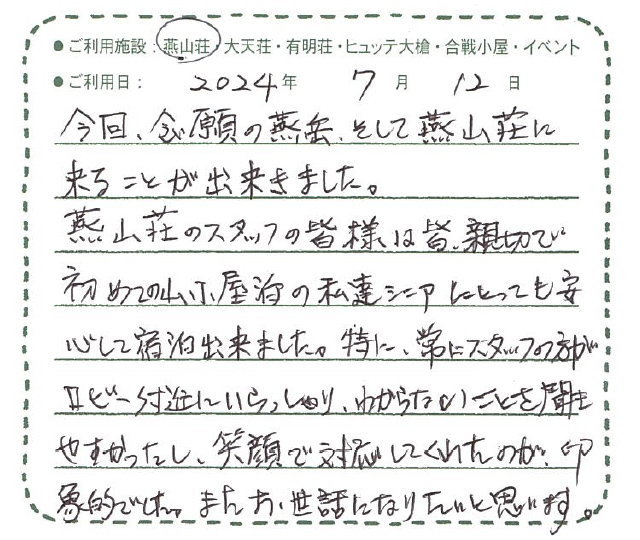 ●ご利用施設：燕山荘・大天荘・有明荘・ヒュッテ大槍・合戦小屋・イベント
●ご利用日： 2024年 7月 12日
今回、念願の燕岳、そして燕山荘に
来ることが出来きました。
燕山荘のスタッフの皆様は皆、親切で
初めての山小屋泊の私達シニアにとっても安
心して宿泊出来ました。特に、常にスタッフの方が
ロビー付近にいらっしゃり、わからないことを聞き
やすかったし、笑顔で対応してくれたのが、印
象的でした。またお世話になりたいと思います。